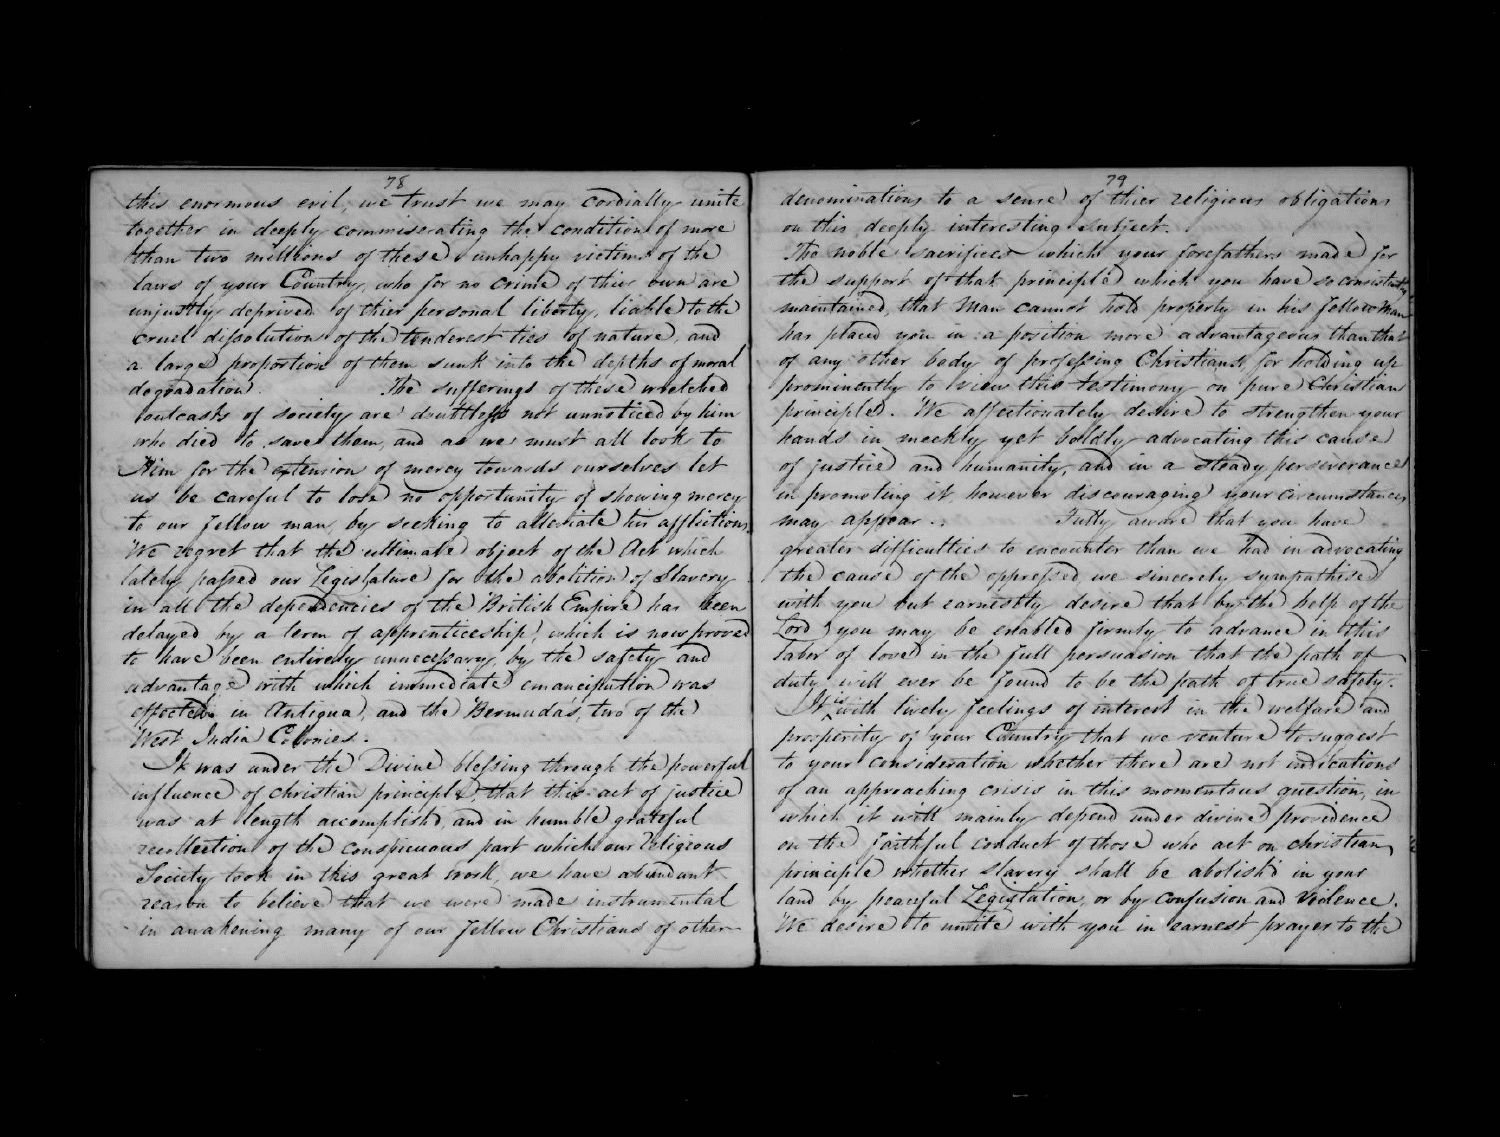 78
this enormous evil, we trust we may cordially unite
together in deeply commiserating the condition of more
than two millions of these unhappy victims of the
laws of your Country, who for no crime of thier own are
unjustly deprived of thier personal liberty, liable to the
cruel dissolution of the tenderest ties of nature, and
a large proportion of them sunk into the depths of moral
degradation. The sufferings of these wretched
outcasts of society are doubtless not unnoticed by him
who died to save them, and as we must all look to
Him for the extension of mercy towards ourselves let
us be careful to lose no opportunity of showing mercy
to our fellow man, by seeking to alleviate his afflictions.
We regret that the ultimate object of the Act which
lately passed our Legislature for the abolition of Slavery
in all the dependencies of the British Empire has been
delayed by a term of apprenticeship, which is now proved
to have been entirely unnecessary, by the safety and
advantage with which immediate emancipation was
effected in Antigua, and the Bermuda's, two of the
West India Colonies.
It was under the Divine blessing through the powerful
influence of christian principle, that this act of justice
was at length accomplish'd, and in humble grateful
recollection of the conspicuous part which our religious
Society took in this great work, we have abundant
reason to believe that we were made instrumental
in awakening many of our fellow Christians of other
79
denominations to a sense of thier religious obligations
on this deeply interesting subject.
The noble sacrifices which your forefathers made for
the support of that principle which you have so consistently
maintained, that Man cannot hold property in his fellow Man
has placed you in a position more advantageous than that
of any other body of professing Christians, for holding up
prominently to view this testimony on pure Christian
principled. We affectionately desire to strengthen your
hands in meekly yet boldly advocating this cause
of justice and humanity, and in a steady perseverance
in promoting it however discouraging your circumstances
may appear. Fully aware that you have
greater difficulties to encounter than we had in advocating
the cause of the oppressed, we sincerely sympathise
with you but earnestly desire that by the help of the
Lord, you may be enabled firmly to advance in this
labor of love in the full persuasion that the path of
duty will ever be found to be the path of true safety.
It is with lively feelings of interest in the welfare and
prosperity of your Country that we venture to suggest
to your consideration whether there are not indications
of an approaching crisis in this momentous question, in
which it will mainly depend under divine providence
on the faithful conduct of those who act on christian
principle whether slavery shall be abolish'd in your
land by peaceful Legislation, or by confusion and Violence.
We desire to unite with you in earnest prayer to the